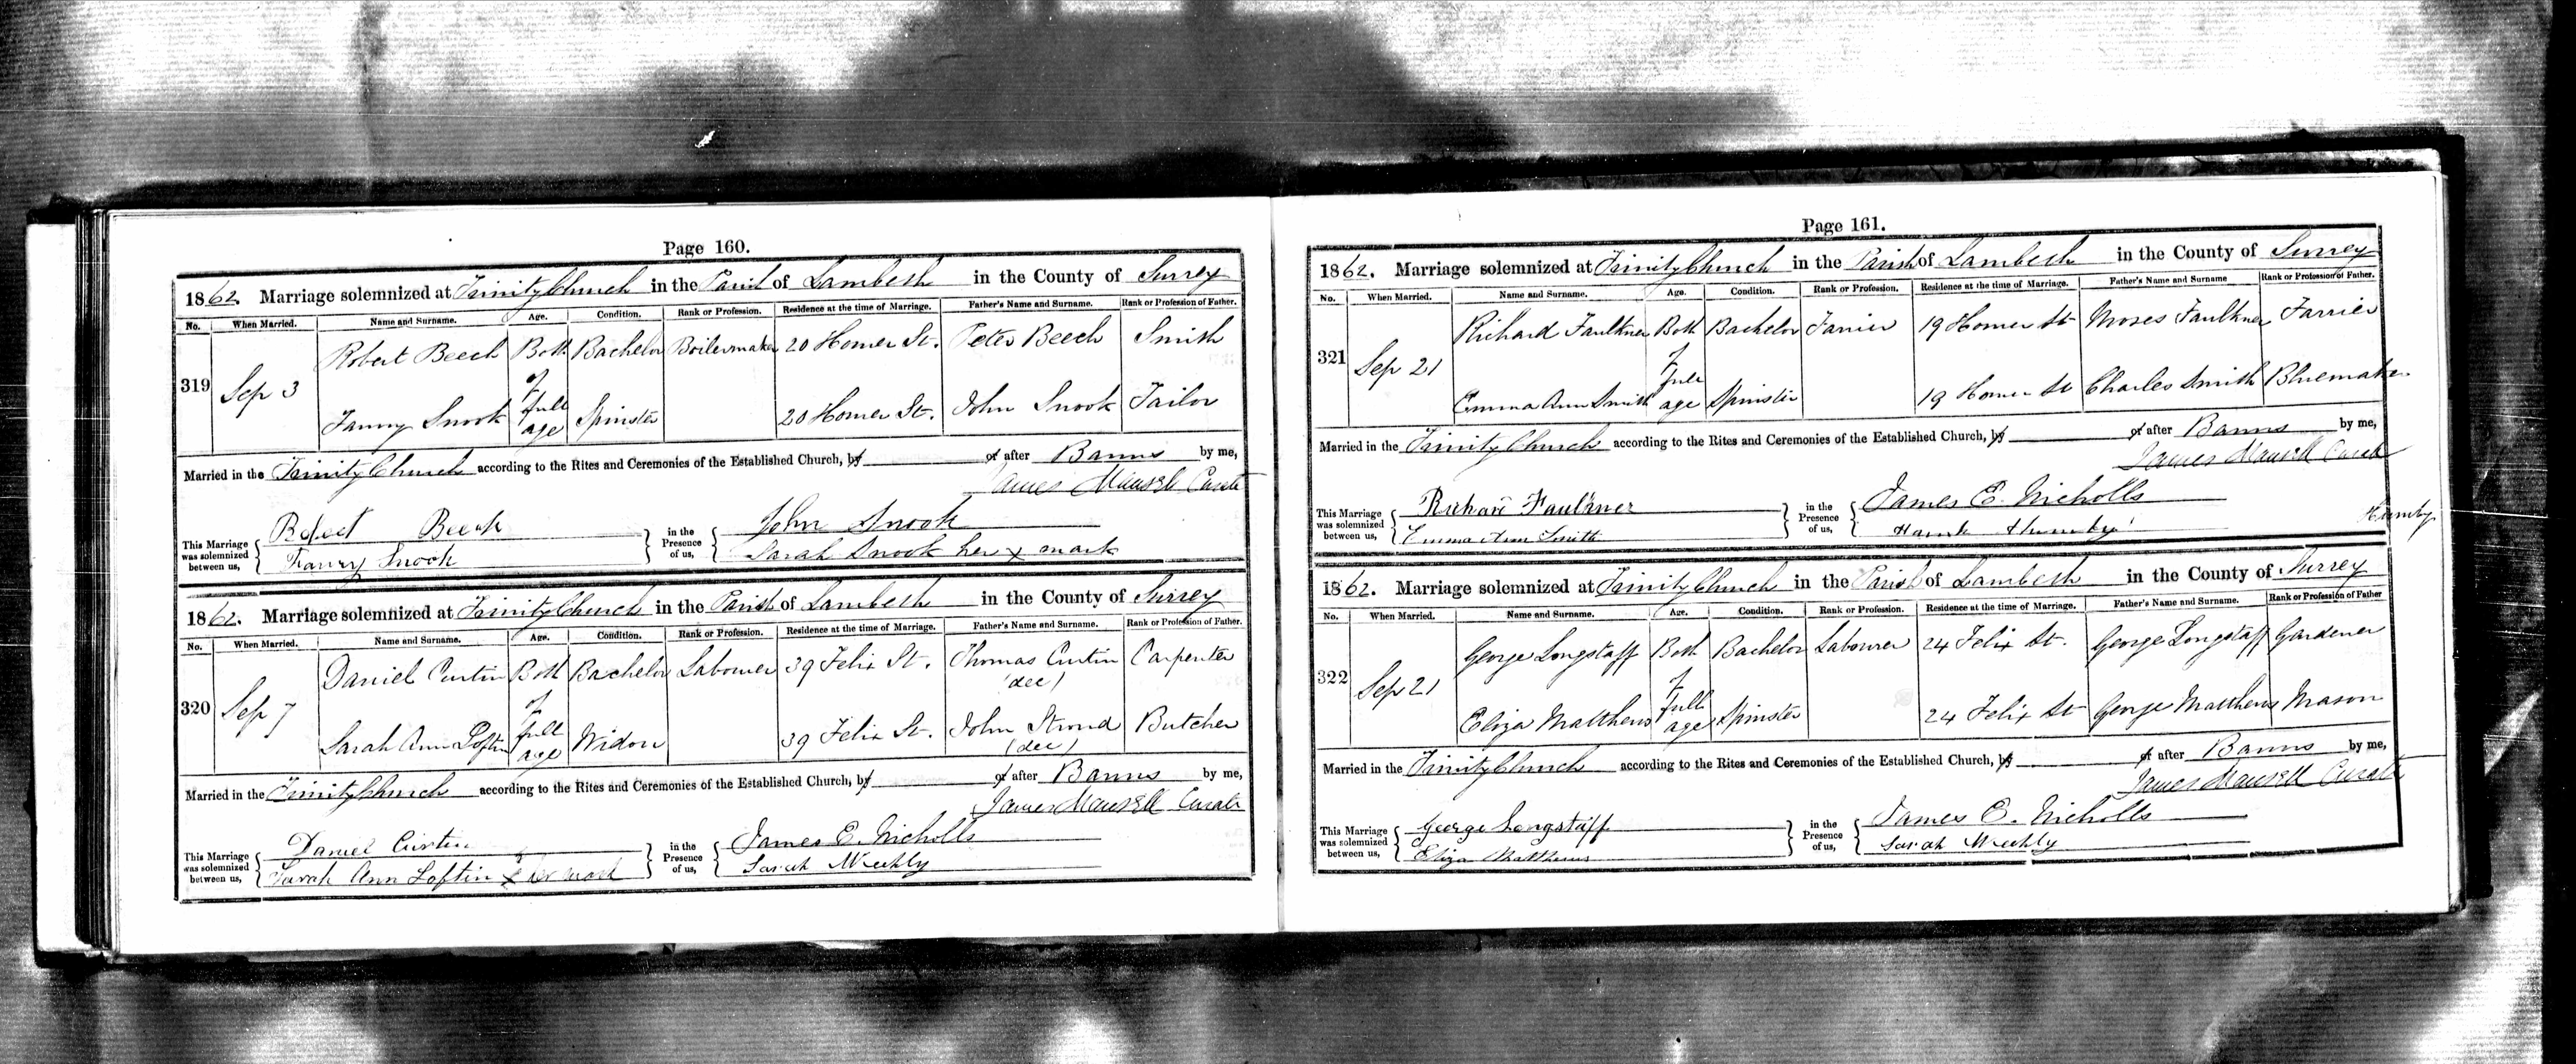 Page 160.
1862. Marriage solemnized at Trinity Church in the Parish of Lambeth in the County of Surrey
No. When Married. Name and Surname. Age. Condition. Rank or Profession. Residence at the time of Marriage. Father's Name and Surname. Rank or Profession of Father.
319 Sep 3
Robert Beech Both Bachelor Boilermaker 20 Homer St. Peter Beech Smith
of
Fanny Snook full age Spinster 20 Homer St. John Snook Tailor
Married in the Trinity Church according to the Rites and Ceremonies of the Established Church, by or after Banns by me,
James Maxwell Curate
This Marriage was solemnized between us, Robert Beech Fanny Snook
in the Presence of us, John Snook Sarah Snook her x mark
1862. Marriage solemnized at Trinity Church in the Parish of Lambeth in the County of Surrey
No. When Married. Name and Surname. Age. Condition. Rank or Profession. Residence at the time of Marriage. Father's Name and Surname. Rank or Profession of Father.
320 Sep 7
Daniel Curtin Both Bachelor Labourer 39 Felix St. Thomas Curtin (dec) Carpenter
of
Sarah Ann Loftin full age Widow 39 Felix St. John Stroud (dec) Butcher
Married in the Trinity Church according to the Rites and Ceremonies of the Established Church, by or after Banns by me,
James Curate
This Marriage was solemnized between us, Daniel Curtin Sarah Ann Loftin x her mark
in the Presence of us, James E. Nicholls Sarah Weekly
Page 161.
1862. Marriage solemnized at Trinity Church in the Parish of Lambeth in the County of Surrey
No. When Married. Name and Surname. Age. Condition. Rank or Profession. Residence at the time of Marriage. Father's Name and Surname. Rank or Profession of Father.
321 Sep 21
Richard Faulkner Both Bachelor Farrier 19 Homer St Moses Faulkner Farrier
of
Emma Ann Smith full age Spinster 19 Homer St Charles Smith Bluemaker
Married in the Trinity Church according to the Rites and Ceremonies of the Established Church, by or after Banns by me,
James Curate
This Marriage was solemnized between us, Richard Faulkner Emma Ann Smith
in the Presence of us, James E. Nicholls
1862. Marriage solemnized at Trinity Church in the Parish of Lambeth in the County of Surrey
No. When Married. Name and Surname. Age. Condition. Rank or Profession. Residence at the time of Marriage. Father's Name and Surname. Rank or Profession of Father
322 Sep 21
George Longstaff Both Bachelor Labourer 24 Felix St. George Longstaff Gardener
of
Eliza Matthews full age Spinster 24 Felix St George Matthews Mason
Married in the Trinity Church according to the Rites and Ceremonies of the Established Church, by or after Banns by me,
James Curate
This Marriage was solemnized between us, George Longstaff Eliza Matthews
in the Presence of us, James E. Nicholls Sarah Weekly